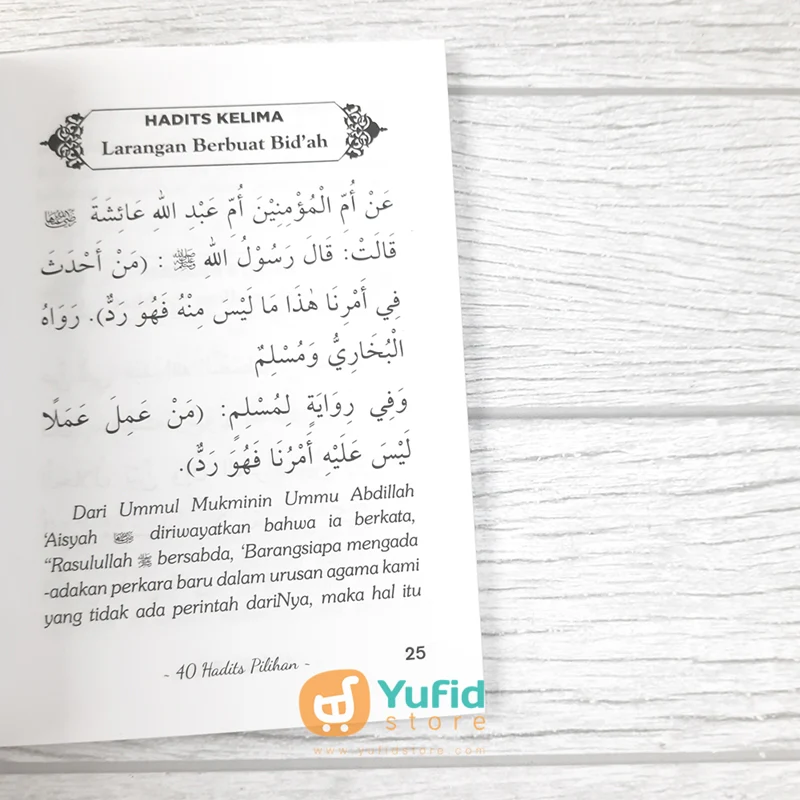 HADITS KELIMA
Larangan Berbuat Bid'ah
عَنْ أُمِّ الْمُؤْمِنِيْنَ أُمِّ عَبْدِ اللهِ عَائِشَةَ
قَالَتْ: قَالَ رَسُوْلُ اللهِ ﷺ : (مَنْ أَحْدَثَ
فِي أَمْرِنَا هٰذَا مَا لَيْسَ مِنْهُ فَهُوَ رَدٌّ). رَوَاهُ
الْبُخَارِيُّ وَمُسْلِمٌ
وَفِي رِوَايَةٍ لِمُسْلِمٍ: (مَنْ عَمِلَ عَمَلًا
لَيْسَ عَلَيْهِ أَمْرُنَا فَهُوَ رَدٌّ).
Dari Ummul Mukminin Ummu Abdillah
'Aisyah diriwayatkan bahwa ia berkata,
"Rasulullah ﷺ bersabda, 'Barangsiapa mengada
-adakan perkara baru dalam urusan agama kami
yang tidak ada perintah dariNya, maka hal itu
- 40 Hadits Pilihan -
25
Yufid
store
www.yufidstore.com